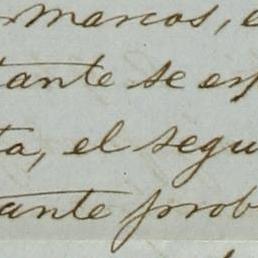 nmarcos, e
tante se esp
ta, el segu
ante prob